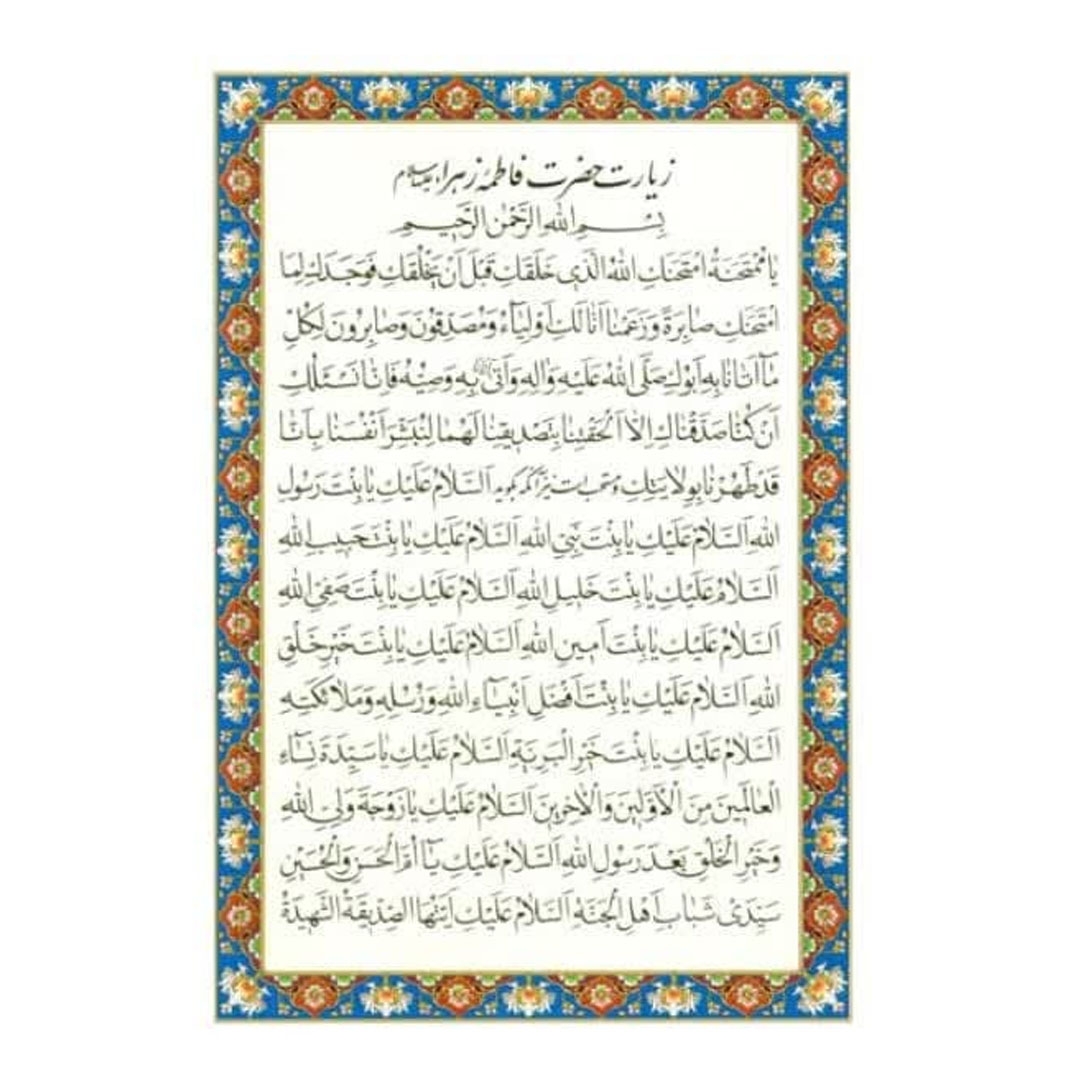 زیارت حضرت فاطمهٔ زهراء علیهاسلام
بِسْمِ اللهِ الرَّحْمٰنِ الرَّحیمِ
یٰا مُمْتَحَنَةُ امْتَحَنَكِ اللهُ الَّذی خَلَقَكِ قَبْلَ اَنْ یَخْلُقَكِ فَوَجَدَكِ لِمَا
امْتَحَنَكِ صٰابِرَةً وَ زَعَمْنٰا اَنّٰا لَكِ اَوْلِیٰٓاءُ وَ مُصَدِّقُونَ وَ صٰابِرُونَ لِكُلِّ
مٰآ اَتٰانٰا بِهِ اَبُوكِ صَلَّی اللهُ عَلَیْهِ وَ اٰلِهِ وَ اَتٰی بِهِ وَصِیُّهُ فَاِنّٰا نَسْئَلُكِ
اَنْ كُنّٰا صَدَّقْنٰاكِ اِلاّٰ اَلْحَقْتِنٰا بِتَصْدیقِنٰا لَهُمٰا لِنُبَشِّرَ اَنْفُسَنٰا بِاَنّٰا
قَدْ طَهُرْنٰا بِوِلاٰیَتِكِ و مستحب است نیز آنکه بگوید اَلسَّلاٰمُ عَلَیْكِ یٰا بِنْتَ رَسُولِ
اللهِ اَلسَّلاٰمُ عَلَیْكِ یٰا بِنْتَ نَبِیِّ اللهِ اَلسَّلاٰمُ عَلَیْكِ یٰا بِنْتَ حَبیبِ اللهِ
اَلسَّلاٰمُ عَلَیْكِ یٰا بِنْتَ خَلیلِ اللهِ اَلسَّلاٰمُ عَلَیْكِ یٰا بِنْتَ صَفِیِّ اللهِ
اَلسَّلاٰمُ عَلَیْكِ یٰا بِنْتَ اَمینِ اللهِ اَلسَّلاٰمُ عَلَیْكِ یٰا بِنْتَ خَیْرِ خَلْقِ
اللهِ اَلسَّلاٰمُ عَلَیْكِ یٰا بِنْتَ اَفْضَلِ اَنْبِیٰٓاءِ اللهِ وَ رُسُلِهِ وَ مَلاٰئِكَتِهِ
اَلسَّلاٰمُ عَلَیْكِ یٰا بِنْتَ خَیْرِ الْبَرِیَّةِ اَلسَّلاٰمُ عَلَیْكِ یٰا سَیِّدَةَ نِسٰٓاءِ
الْعٰالَمینَ مِنَ الْاَوَّلینَ وَ الْاٰخِرینَ اَلسَّلاٰمُ عَلَیْكِ یٰا زَوْجَةَ وَلِیِّ اللهِ
وَ خَیْرِ الْخَلْقِ بَعْدَ رَسُولِ اللهِ اَلسَّلاٰمُ عَلَیْكِ یٰٓا اُمَّ الْحَسَنِ وَ الْحُسَیْنِ
سَیِّدَیْ شَبٰابِ اَهْلِ الْجَنَّةِ اَلسَّلاٰمُ عَلَیْكِ اَیَّتُهَا الصِّدّیقَةُ الشَّهیدَةُ